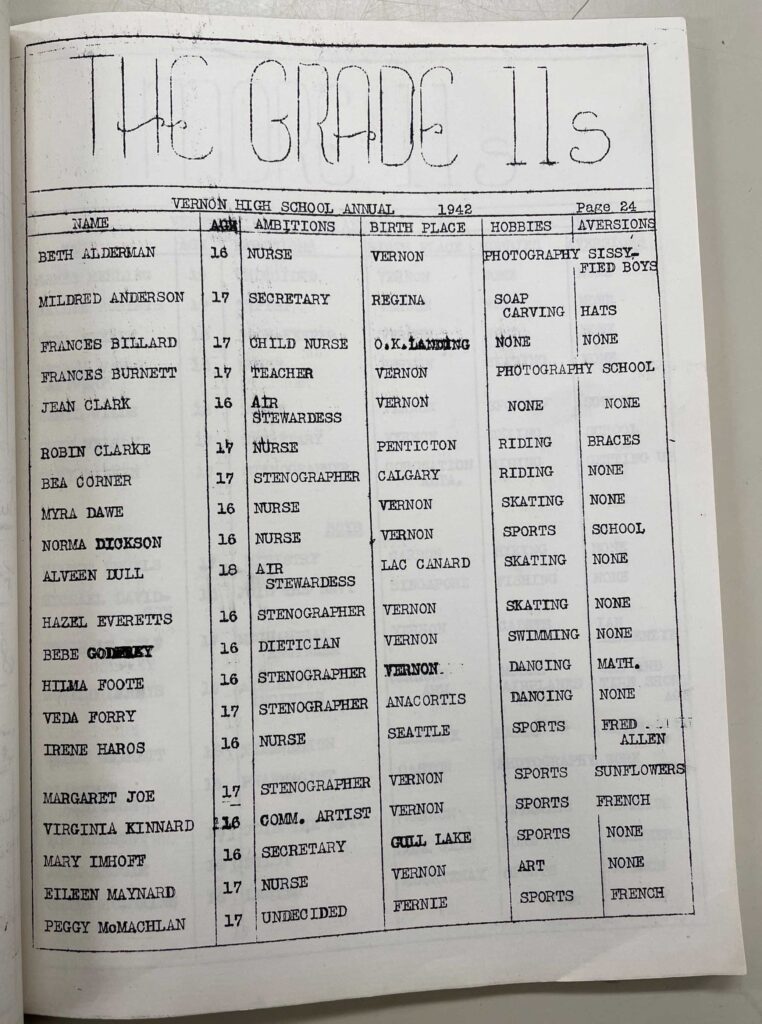 THE GRADE 11s
VERNON HIGH SCHOOL ANNUAL 1942 Page 24
NAME AGE AMBITIONS BIRTH PLACE HOBBIES AVERSIONS
BETH ALDERMAN 16 NURSE VERNON PHOTOGRAPHY SISSY-
FIED BOYS
MILDRED ANDERSON 17 SECRETARY REGINA SOAP
CARVING HATS
FRANCES BILLARD 17 CHILD NURSE O.K.LANDING NONE NONE
FRANCES BURNETT 17 TEACHER VERNON PHOTOGRAPHY SCHOOL
JEAN CLARK 16 AIR VERNON NONE NONE
STEWARDESS
ROBIN CLARKE 17 NURSE PENTICTON RIDING BRACES
BEA CORNER 17 STENOGRAPHER CALGARY RIDING NONE
MYRA DAWE 16 NURSE VERNON SKATING NONE
NORMA DICKSON 16 NURSE VERNON SPORTS SCHOOL
ALVEEN DULL 18 AIR LAC CANARD SKATING NONE
STEWARDESS
HAZEL EVERETTS 16 STENOGRAPHER VERNON SKATING NONE
BEBE GODFREY 16 DIETICIAN VERNON SWIMMING NONE
HILMA FOOTE 16 STENOGRAPHER VERNON. DANCING MATH.
VEDA FORRY 17 STENOGRAPHER ANACORTIS DANCING NONE
IRENE HAROS 16 NURSE SEATTLE SPORTS FRED
ALLEN
MARGARET JOE 17 STENOGRAPHER VERNON SPORTS SUNFLOWERS
VIRGINIA KINNARD 16 COMM. ARTIST VERNON SPORTS FRENCH
MARY IMHOFF 16 SECRETARY GULL LAKE SPORTS NONE
EILEEN MAYNARD 17 NURSE VERNON ART NONE
PEGGY McMACHLAN 17 UNDECIDED FERNIE SPORTS FRENCH